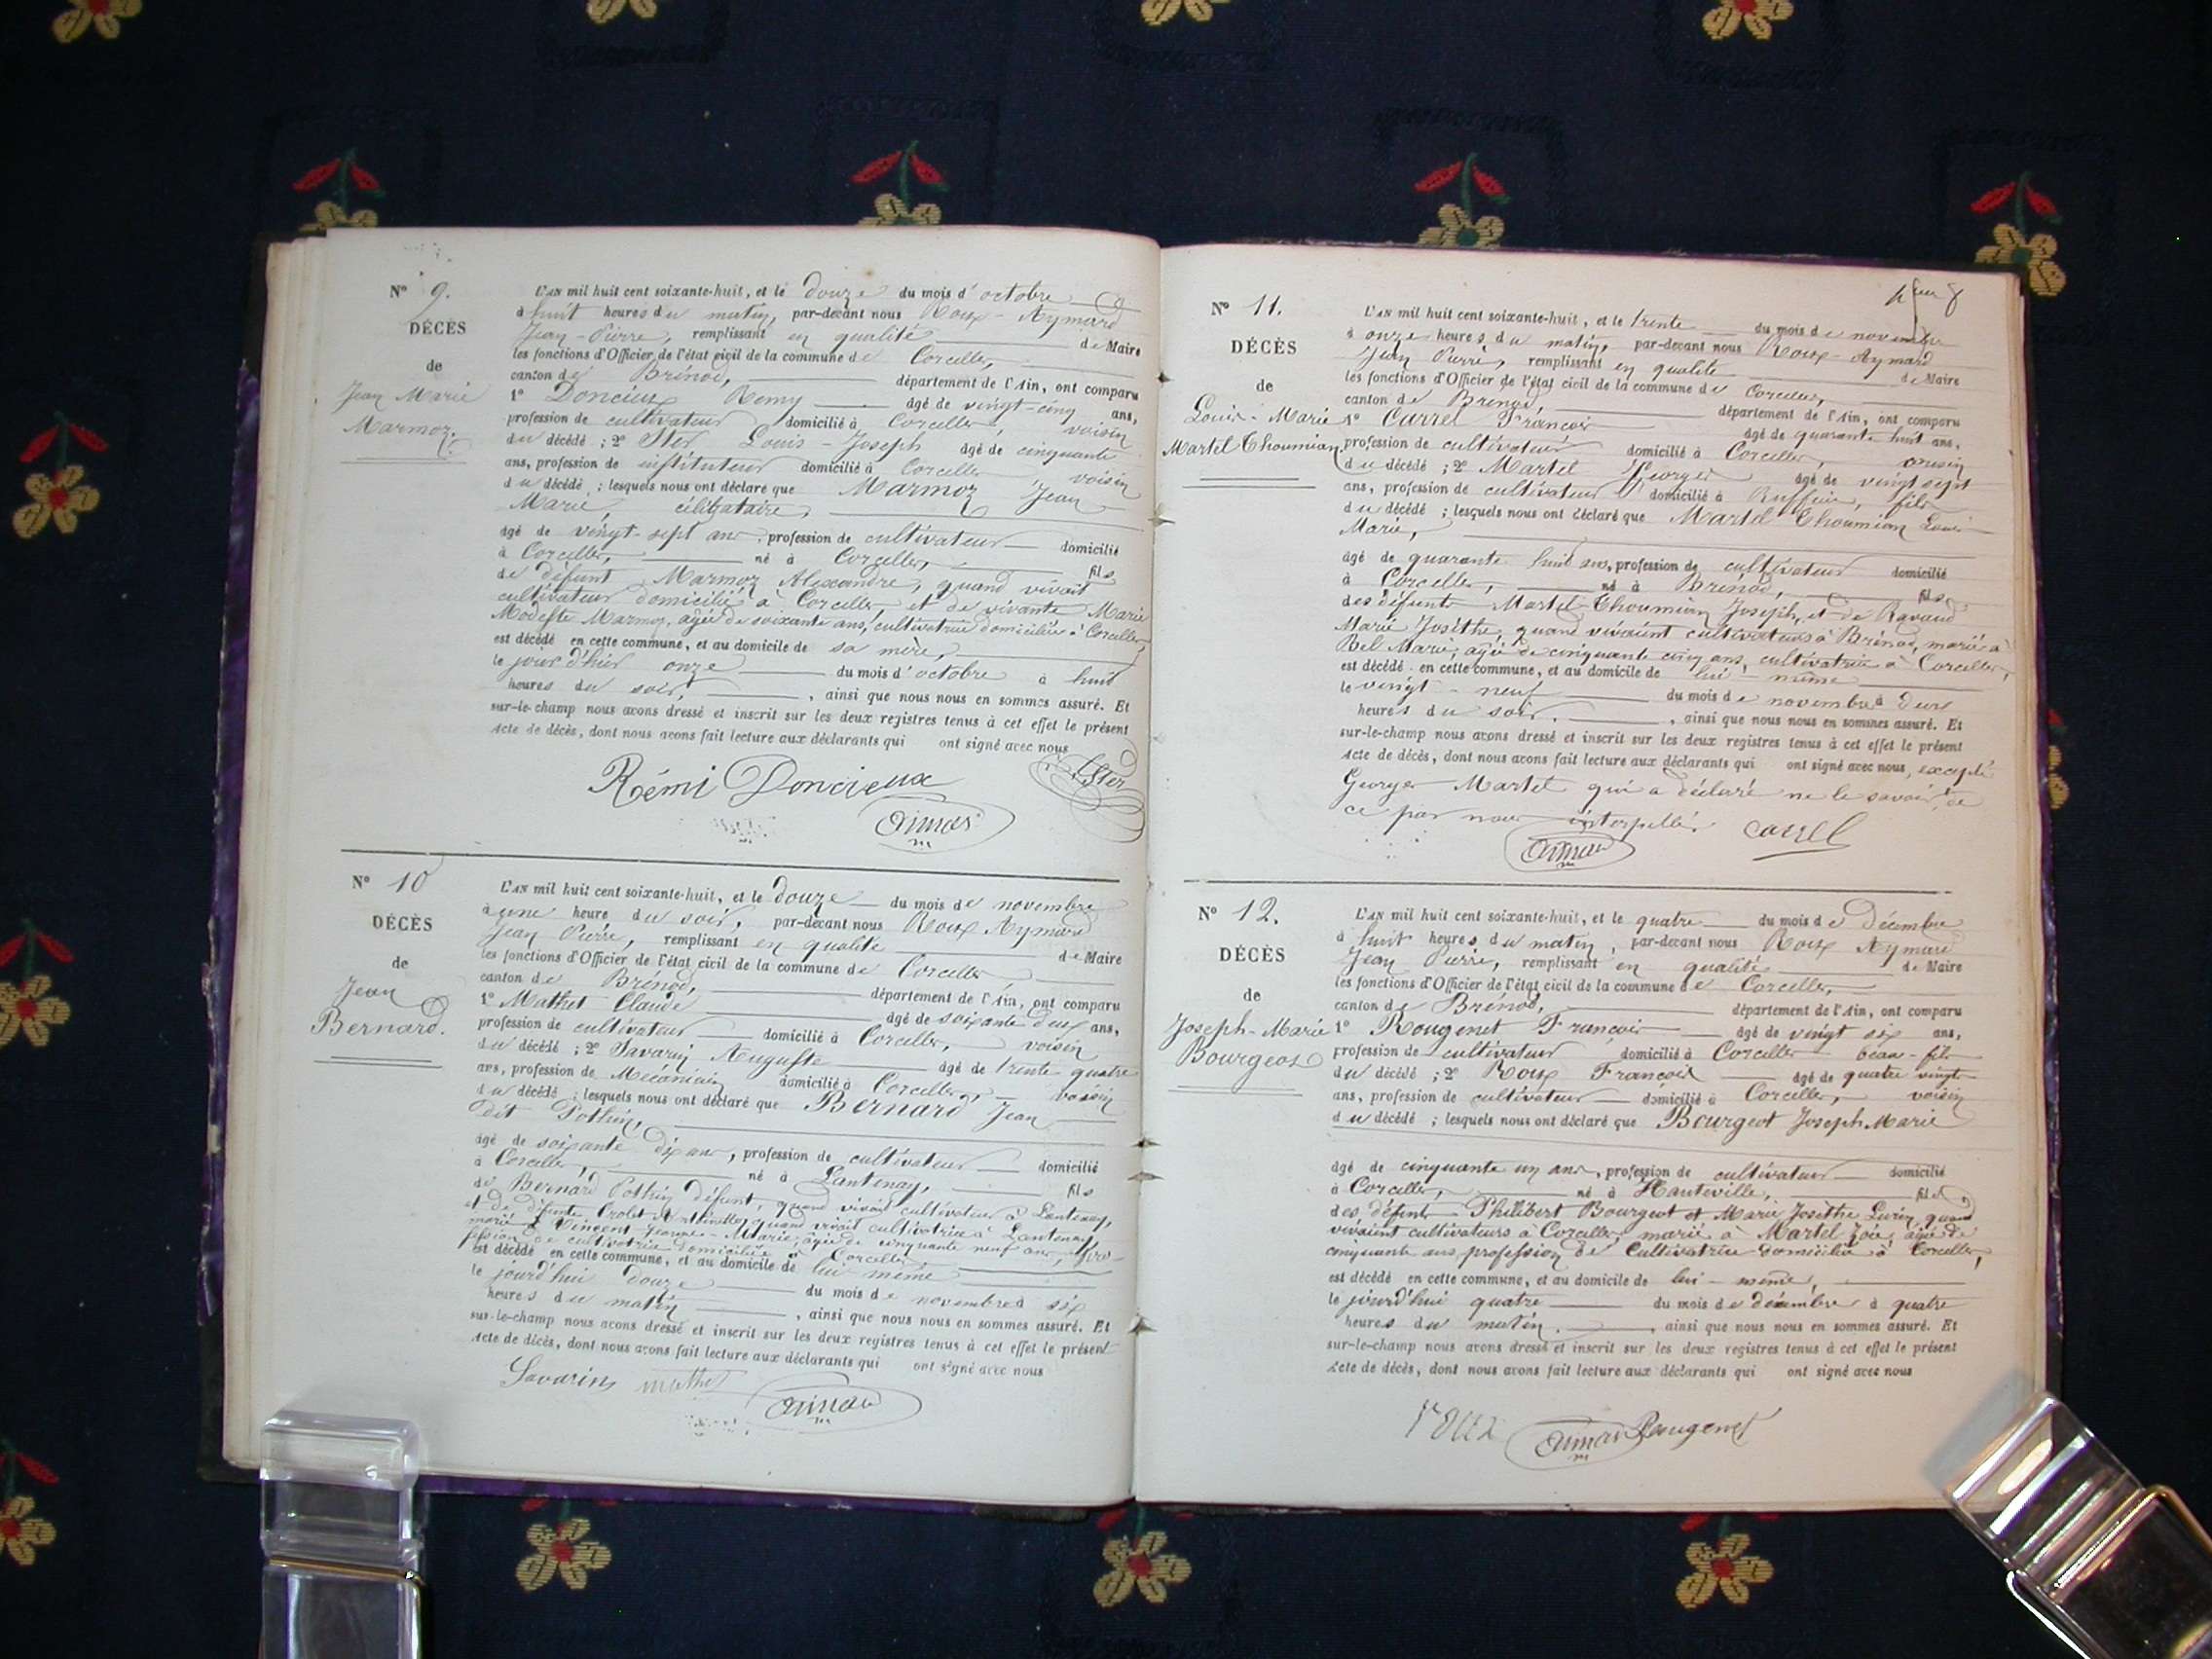 N° 9.
DÉCÈS
de
Jean Marie
Marmoz.
L'AN mil huit cent soixante-huit, et le douze du mois d'octobre
à huit heures du matin, par-devant nous Roux-Aymard
Jean-Pierre, remplissant en qualité de Maire
les fonctions d'Officier de l'état civil de la commune de Corcelles,
canton de Brénod, département de l'Ain, ont comparu
1° Doncieux Remy âgé de vingt-cinq ans,
profession de cultivateur domicilié à Corcelles, voisin
du décédé ; 2° Ster Louis-Joseph âgé de cinquante
ans, profession de instituteur domicilié à Corcelles voisin
du décédé ; lesquels nous ont déclaré que Marmoz Jean
Marie, célibataire,
âgé de vingt-sept ans, profession de cultivateur domicilié
à Corcelles, né à Corcelles, fils
de défunt Marmoz Alexandre, quand vivait
cultivateur domicilié à Corcelles, et de vivante Marie
Modeste Marmoz, agée de soixante ans, cultivatrice domiciliée à Corcelles,
est décédé en cette commune, et au domicile de sa mère,
le jour d'hier onze du mois d'octobre à huit
heures du soir, , ainsi que nous nous en sommes assuré. Et
sur-le-champ nous avons dressé et inscrit sur les deux registres tenus à cet effet le présent
acte de décès, dont nous avons fait lecture aux déclarants qui ont signé avec nous
Rémi Doncieux Ster
N° 10
DÉCÈS
de
Jean
Bernard.
L'AN mil huit cent soixante-huit, et le douze du mois de novembre
à une heure du soir, par-devant nous Roux Aymard
Jean Pierre, remplissant en qualité de Maire
les fonctions d'Officier de l'état civil de la commune de Corcelles,
canton de Brénod, département de l'Ain, ont comparu
1° Mathet Claude âgé de soixante deux ans,
profession de cultivateur domicilié à Corcelles, voisin
du décédé ; 2° Savarin Auguste âgé de trente quatre
ans, profession de Mécanicien domicilié à Corcelles, voisin
du décédé ; lesquels nous ont déclaré que Bernard Jean
dit Pothin,
âgé de soixante dix ans, profession de cultivateur domicilié
à Corcelles, né à Lantenay, fils
de Bernard Pothin défunt, quand vivait cultivateur à Lantenay,
et de défunte quand vivait cultivatrice à Lantenay,
marié à Vincent Jeanne-Marie, agée de cinquante neuf ans, pro-
fession de cultivatrice domiciliée à Corcelles
est décédé en cette commune, et au domicile de lui même
le jourd'hui douze du mois de novembre à six
heures du matin , ainsi que nous nous en sommes assuré. Et
sur-le-champ nous avons dressé et inscrit sur les deux registres tenus à cet effet le présent
acte de décès, dont nous avons fait lecture aux déclarants qui ont signé avec nous
Savarin mathet
N° 11.
DÉCÈS
de
Louis-Marie
Martel Thoumian
L'AN mil huit cent soixante-huit, et le trente du mois de novembre
à onze heures du matin, par-devant nous Roux-Aymard
Jean Pierre, remplissant en qualité de Maire
les fonctions d'Officier de l'état civil de la commune de Corcelles,
canton de Brénod, département de l'Ain, ont comparu
1° Carrel François âgé de quarante huit ans,
profession de cultivateur domicilié à Corcelles, cousin
du décédé ; 2° Martel Georges âgé de vingt sept
ans, profession de cultivateur domicilié à Ruffieu, fils
du décédé ; lesquels nous ont déclaré que Martel Thoumian Louis
Marie,
âgé de quarante huit ans, profession de cultivateur domicilié
à Corcelles, né à Brénod, fils
des défunts Martel-Thoumian Joseph, et de Ravaud
Marie Josèthe, quand vivaient cultivateurs à Brénod, marié à
Bel Marie, agée de cinquante cinq ans, cultivatrice à Corcelles,
est décédé en cette commune, et au domicile de lui-même
le vingt-neuf du mois de novembre à deux
heures du soir. , ainsi que nous nous en sommes assuré. Et
sur-le-champ nous avons dressé et inscrit sur les deux registres tenus à cet effet le présent
acte de décès, dont nous avons fait lecture aux déclarants qui ont signé avec nous, excepté
Georges Martel qui a déclaré ne le savoir, de
ce par nous interpellé.
Carrel
N° 12.
DÉCÈS
de
Joseph-Marie
Bourgeot
L'AN mil huit cent soixante-huit, et le quatre du mois de décembre
à huit heures du matin, par-devant nous Roux Aymard
Jean Pierre, remplissant en qualité de Maire
les fonctions d'Officier de l'état civil de la commune de Corcelles,
canton de Brénod, département de l'Ain, ont comparu
1° Rougemet François âgé de vingt six ans,
profession de cultivateur domicilié à Corcelles beau-fils
du décédé ; 2° Roux François âgé de quatre vingts
ans, profession de cultivateur domicilié à Corcelles, voisin
du décédé ; lesquels nous ont déclaré que Bourgeot Joseph Marie
âgé de cinquante un ans, profession de cultivateur domicilié
à Corcelles, né à Hauteville, fils
des défunts Philibert Bourgeot et Marie Josèthe quand
vivaient cultivateurs à Corcelles, marié à Martel Zoé, agée de
cinquante ans profession de Cultivatrice domiciliée à Corcelles,
est décédé en cette commune, et au domicile de lui-même,
le jourd'hui quatre du mois de décembre à quatre
heures du matin. , ainsi que nous nous en sommes assuré. Et
sur-le-champ nous avons dressé et inscrit sur les deux registres tenus à cet effet le présent
acte de décès, dont nous avons fait lecture aux déclarants qui ont signé avec nous
roux Rougemet